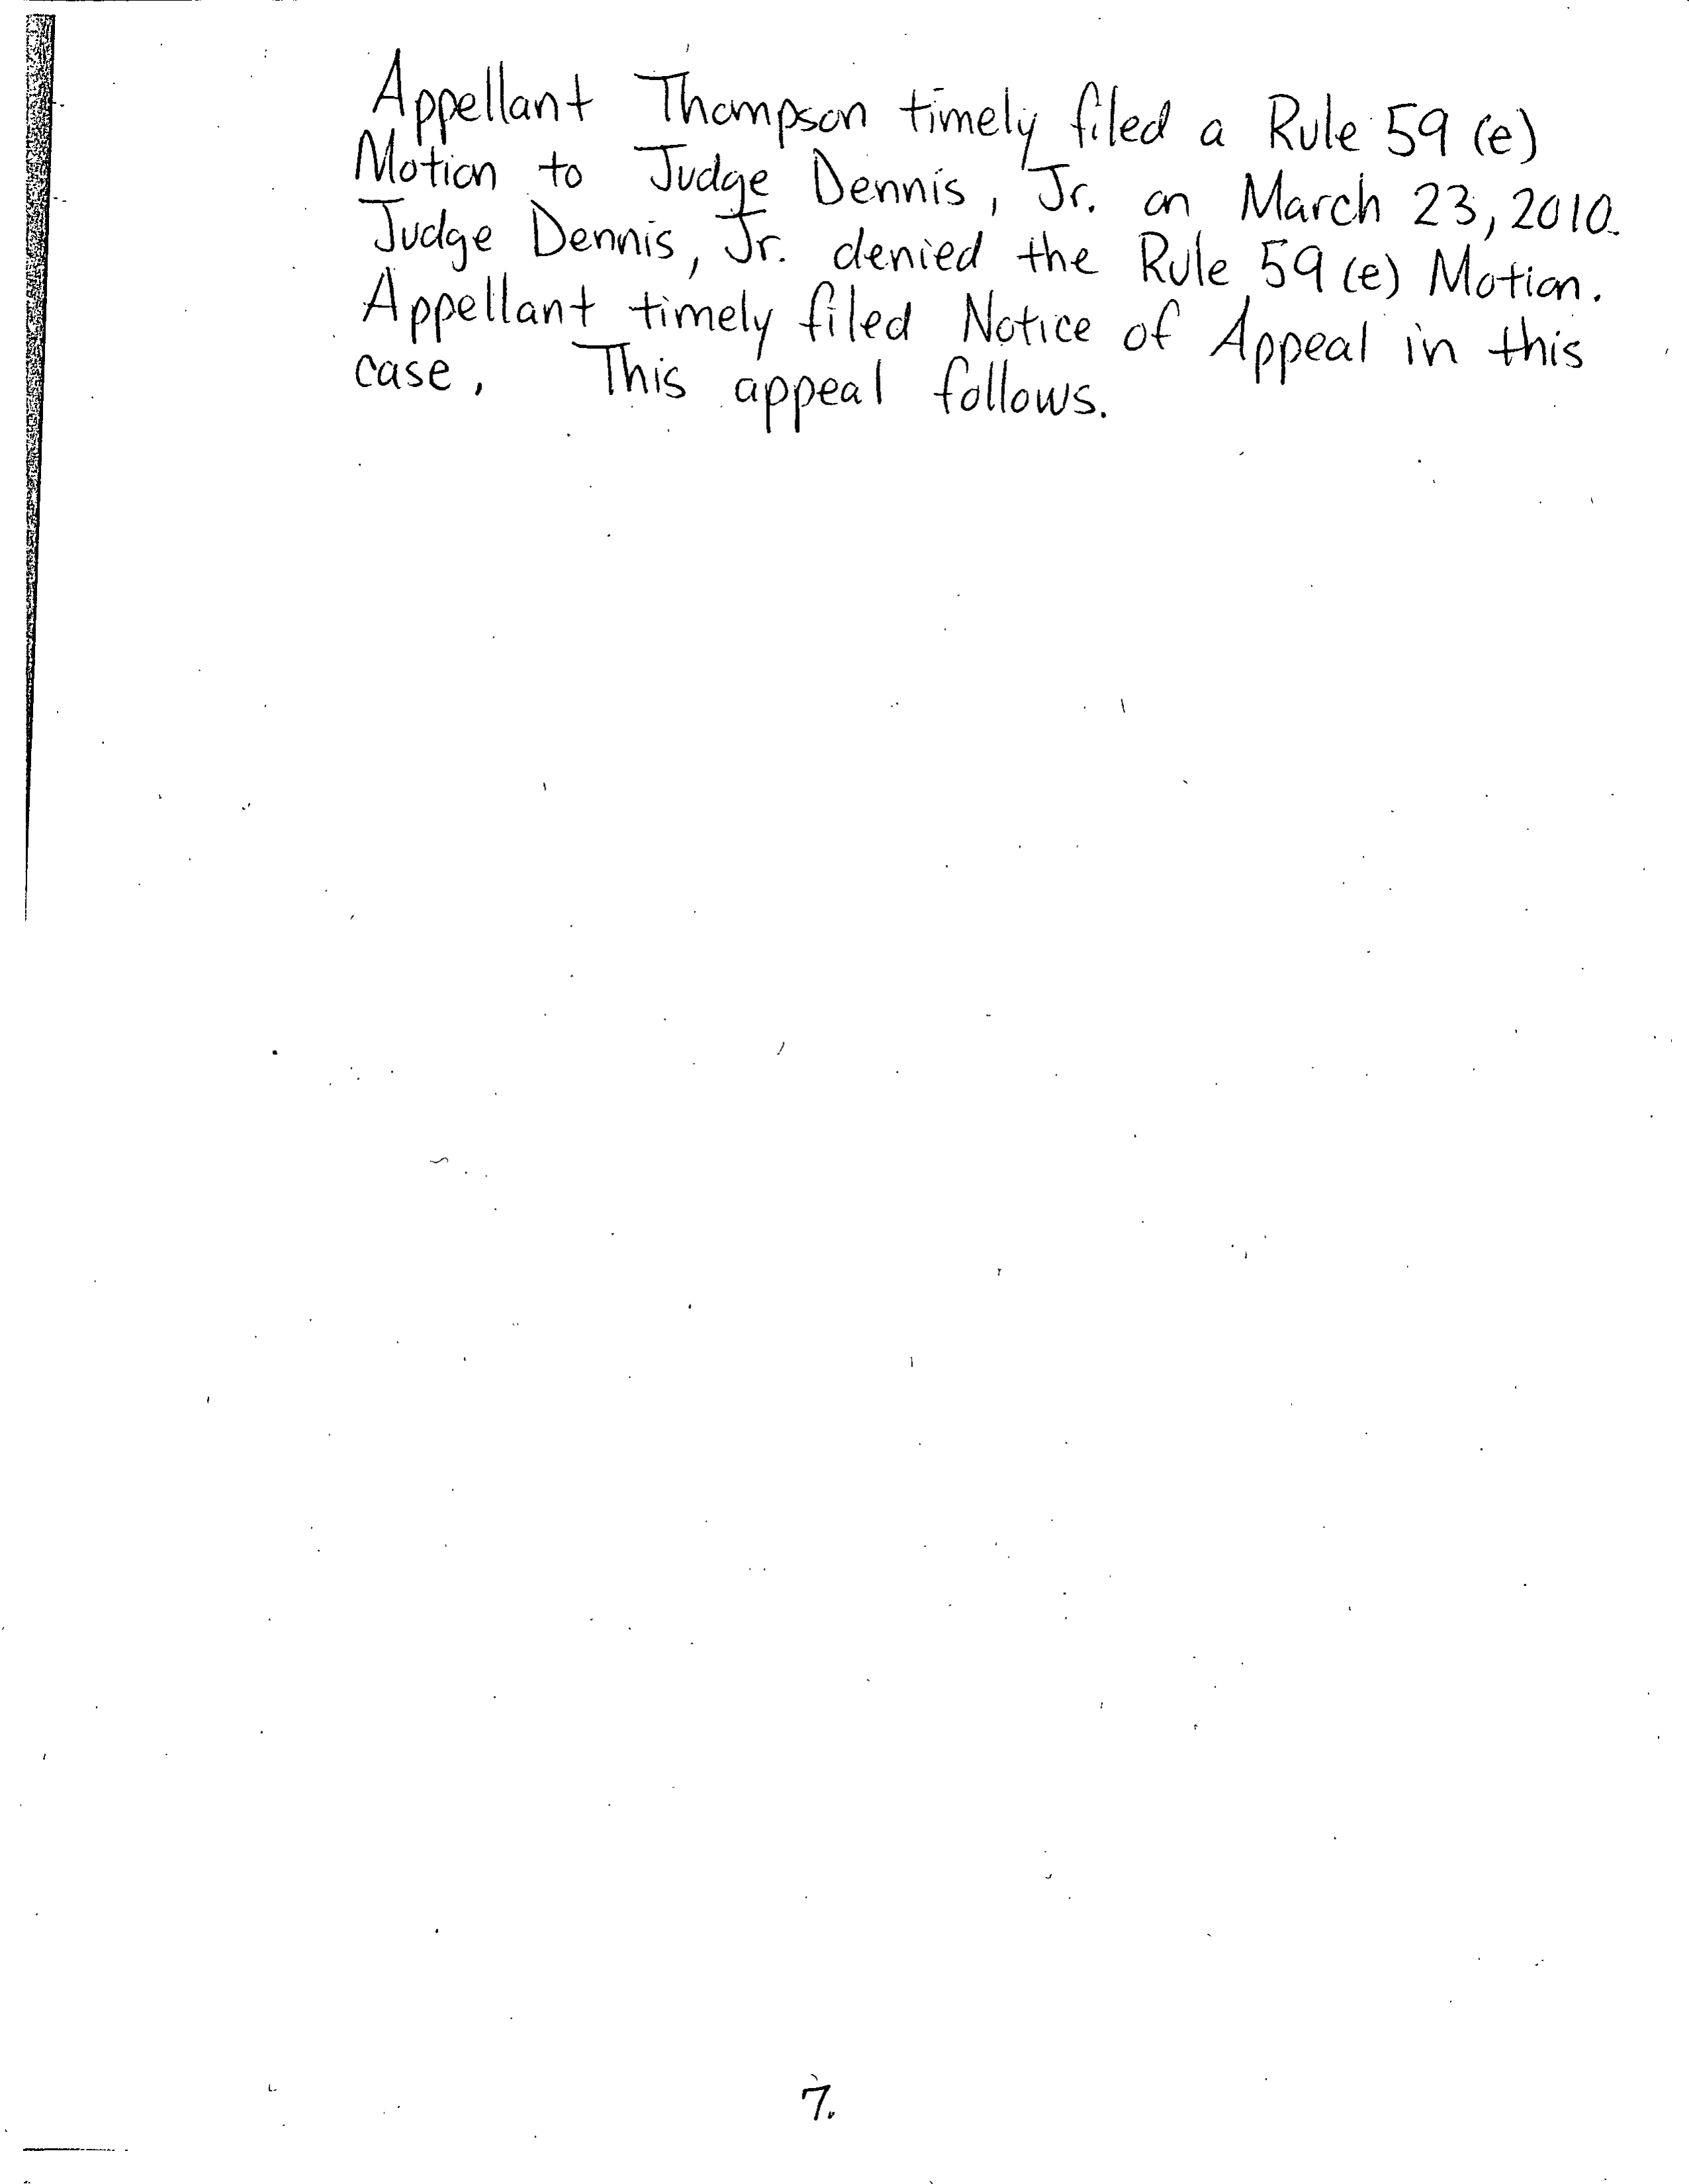 Appellant Thompson timely filed a Rule 59 (e)
Motion to Judge Dennis, Jr. on March 23, 2010.
Judge Dennis, Jr. denied the Rule 59 (e) Motion.
Appellant timely filed Notice of Appeal in this
case. This appeal follows.
7.